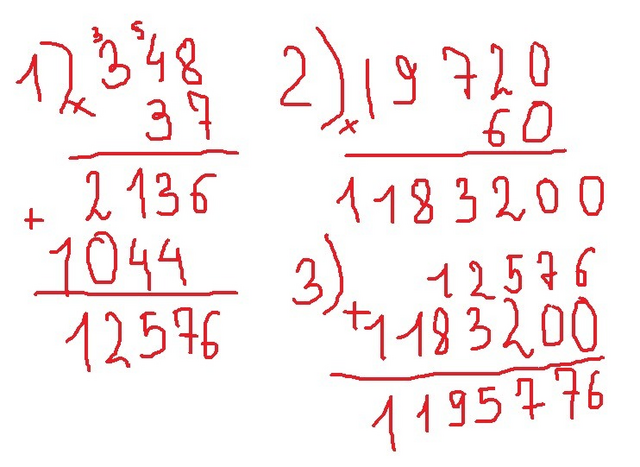 3 5
1) 348
× 37
2136
+
1044
12576
2) 19720
× 60
1183200
3) 12576
+ 1183200
1195776